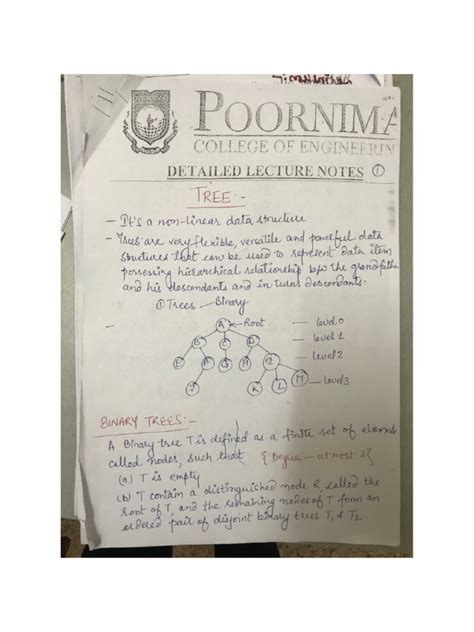 POORNIMA
COLLEGE OF ENGINEERIN
DETAILED LECTURE NOTES 1
TREE:-
- It's a non-linear data structure
- Trees are very flexible, versatile and powerful data
structures that can be used to represent data item
possessing hierarchical relationship b/w the grandfathe
and his descendants and in turn descendants.
① Trees - Binary
A ← Root — level 0
B C D — level 1
E — level 2
K L M — level 3
BINARY TREES:-
A Binary tree T is defined as a finite set of elements
called nodes, such that { Degree - atmost 2 }
(a) T is empty
(b) T contain a distinguished node R, called the
root of T, and the remaining nodes of T form an
ordered pair of disjoint binary trees T1 & T2.